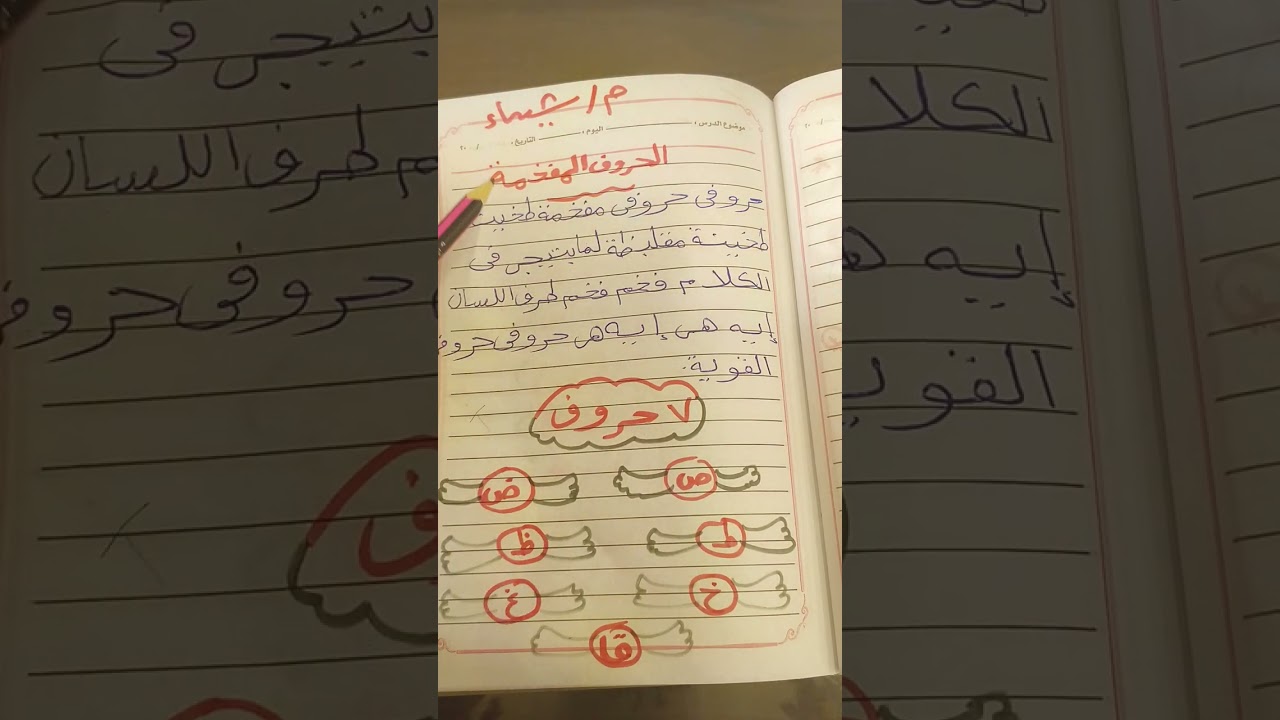 م/شيماء
موضوع الدرس : اليوم : التاريخ : / / ٢٠
الحروف المفخمة
حروفى حروفى مفخمة طخينة
طخينة مقلبظة لما بتيجى فى
الكلام فخم فخم طرف اللسان
إيه هى إيه هى حروفى حروفى
القوية.
٧ حروف
ص ض
ط ظ
خ غ
قا